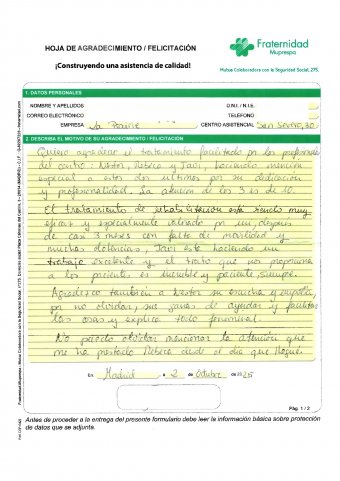 HOJA DE AGRADECIMIENTO / FELICITACIÓN
Fraternidad
Muprespa
¡Construyendo una asistencia de calidad!
Mutua Colaboradora con la Seguridad Social, 275.
1. DATOS PERSONALES
NOMBRE Y APELLIDOS D.N.I. / N.I.E.
CORREO ELECTRÓNICO TELÉFONO
EMPRESA La CENTRO ASISTENCIAL San Severo, 30
2. DESCRIBA EL MOTIVO DE SU AGRADECIMIENTO / FELICITACIÓN
Quiero agradecer el tratamiento facilitado por los profesionales
del centro Nestor, Rebeca y Javi, haciendo mención
especial a estos dos últimos por su dedicación
y profesionalidad. La atención de los 3 es de 10.
El tratamiento de rehabilitación está siendo muy
eficaz y especialmente valorado por mi, después
de casi 3 meses con falta de movilidad y
muchas dolencias, Javi está haciendo un
trabajo excelente y el trato que nos proporciona
a los pacientes es increíble y paciente, siempre.
Agradezco también a Nestor su escucha y empatía,
por no olvidar, sus ganas de ayudar y facilitar
las cosas y explica todo fenomenal.
No puedo olvidar mencionar la atención que
me ha prestado Rebeca desde el día que llegué.
En Madrid a 2 de Octubre de 2025
Pág. 1 / 2
Antes de proceder a la entrega del presente formulario debe leer la información básica sobre protección
de datos que se adjunta.